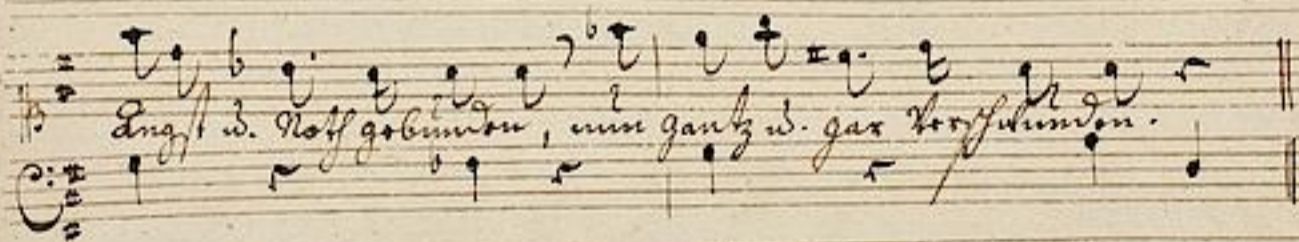 Angst u. Noth gebunden, nun gantz u. gar verschwunden.